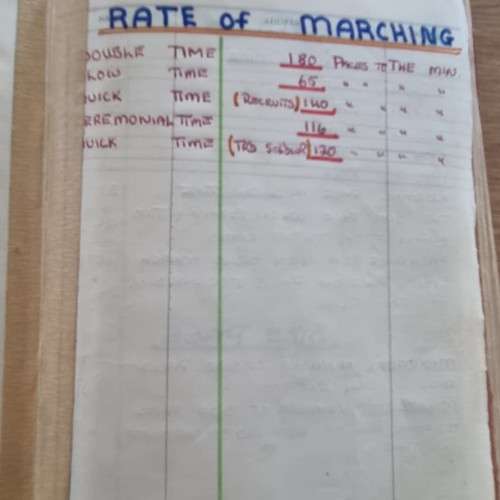 RATE of MARCHING
DOUBLE TIME 180 PACES TO THE MIN.
SLOW TIME 65 " " " "
QUICK TIME (RECRUITS) 140 " " " "
CEREMONIAL TIME 116 " " " "
QUICK TIME (TRD SOLDIER) 120 " " " "